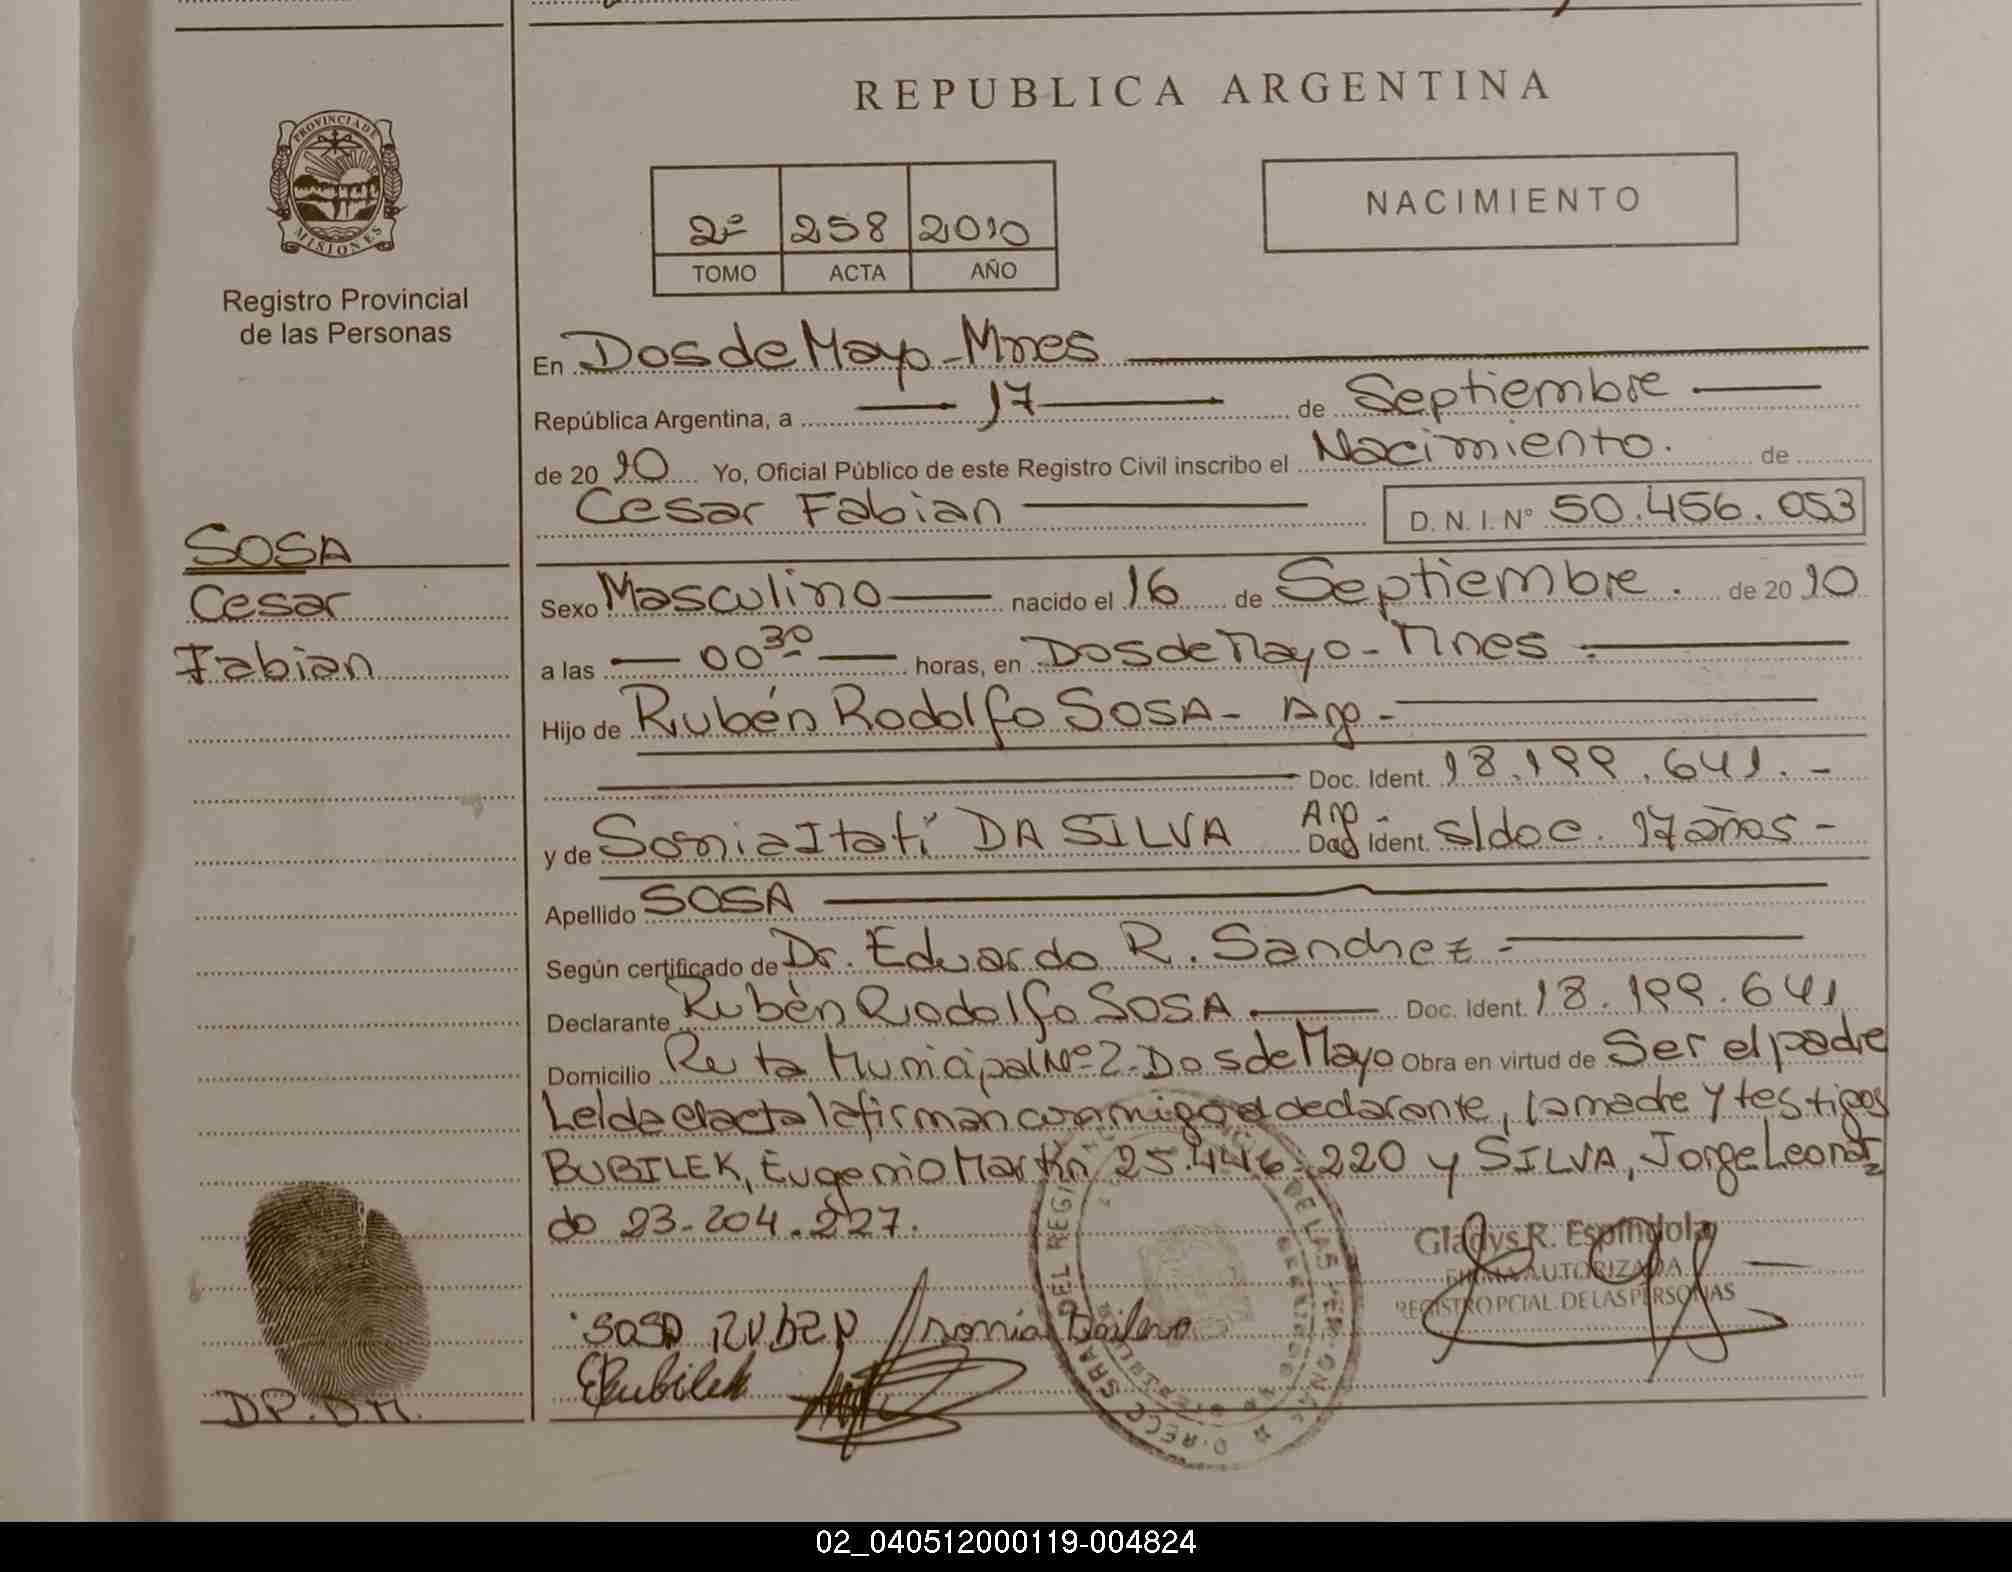 REPUBLICA ARGENTINA
PROVINCIA DE
MISIONES
Registro Provincial
de las Personas
2º 258 2010
TOMO ACTA AÑO
NACIMIENTO
En Dos de Mayo - Mnes
República Argentina, a 17 de Septiembre
de 20 10 Yo, Oficial Público de este Registro Civil inscribo el Nacimiento. de
Cesar Fabian D. N. I. Nº 50.456.053
SOSA
Cesar
Fabian
Sexo Masculino nacido el 16 de Septiembre. de 20 10
a las 00 30 horas, en Dos de Mayo - Mnes.
Hijo de Rubén Rodolfo SOSA - Arg -
Doc. Ident. 18.199.641.-
y de Sonia Itatí DA SILVA Arg - Doc. Ident. s/doc. 17 años -
Apellido SOSA
Según certificado de Dr. Eduardo R. Sanchez -
Declarante Rubén Rodolfo SOSA Doc. Ident. 18.199.641
Domicilio Ruta Municipal Nº 2 - Dos de Mayo Obra en virtud de Ser el padre
Leida el acta la firman conmigo el declarante, la madre y testigos
BUBILEK, Eugenio Martin 25.446.220 y SILVA, Jorge Leonar
do 23-204.227.
Gladys R. Espindola
FIRMA AUTORIZADA
REGISTRO PCIAL. DE LAS PERSONAS
sosa Ruben
EBubilek
DP.D.M.
02_040512000119-004824